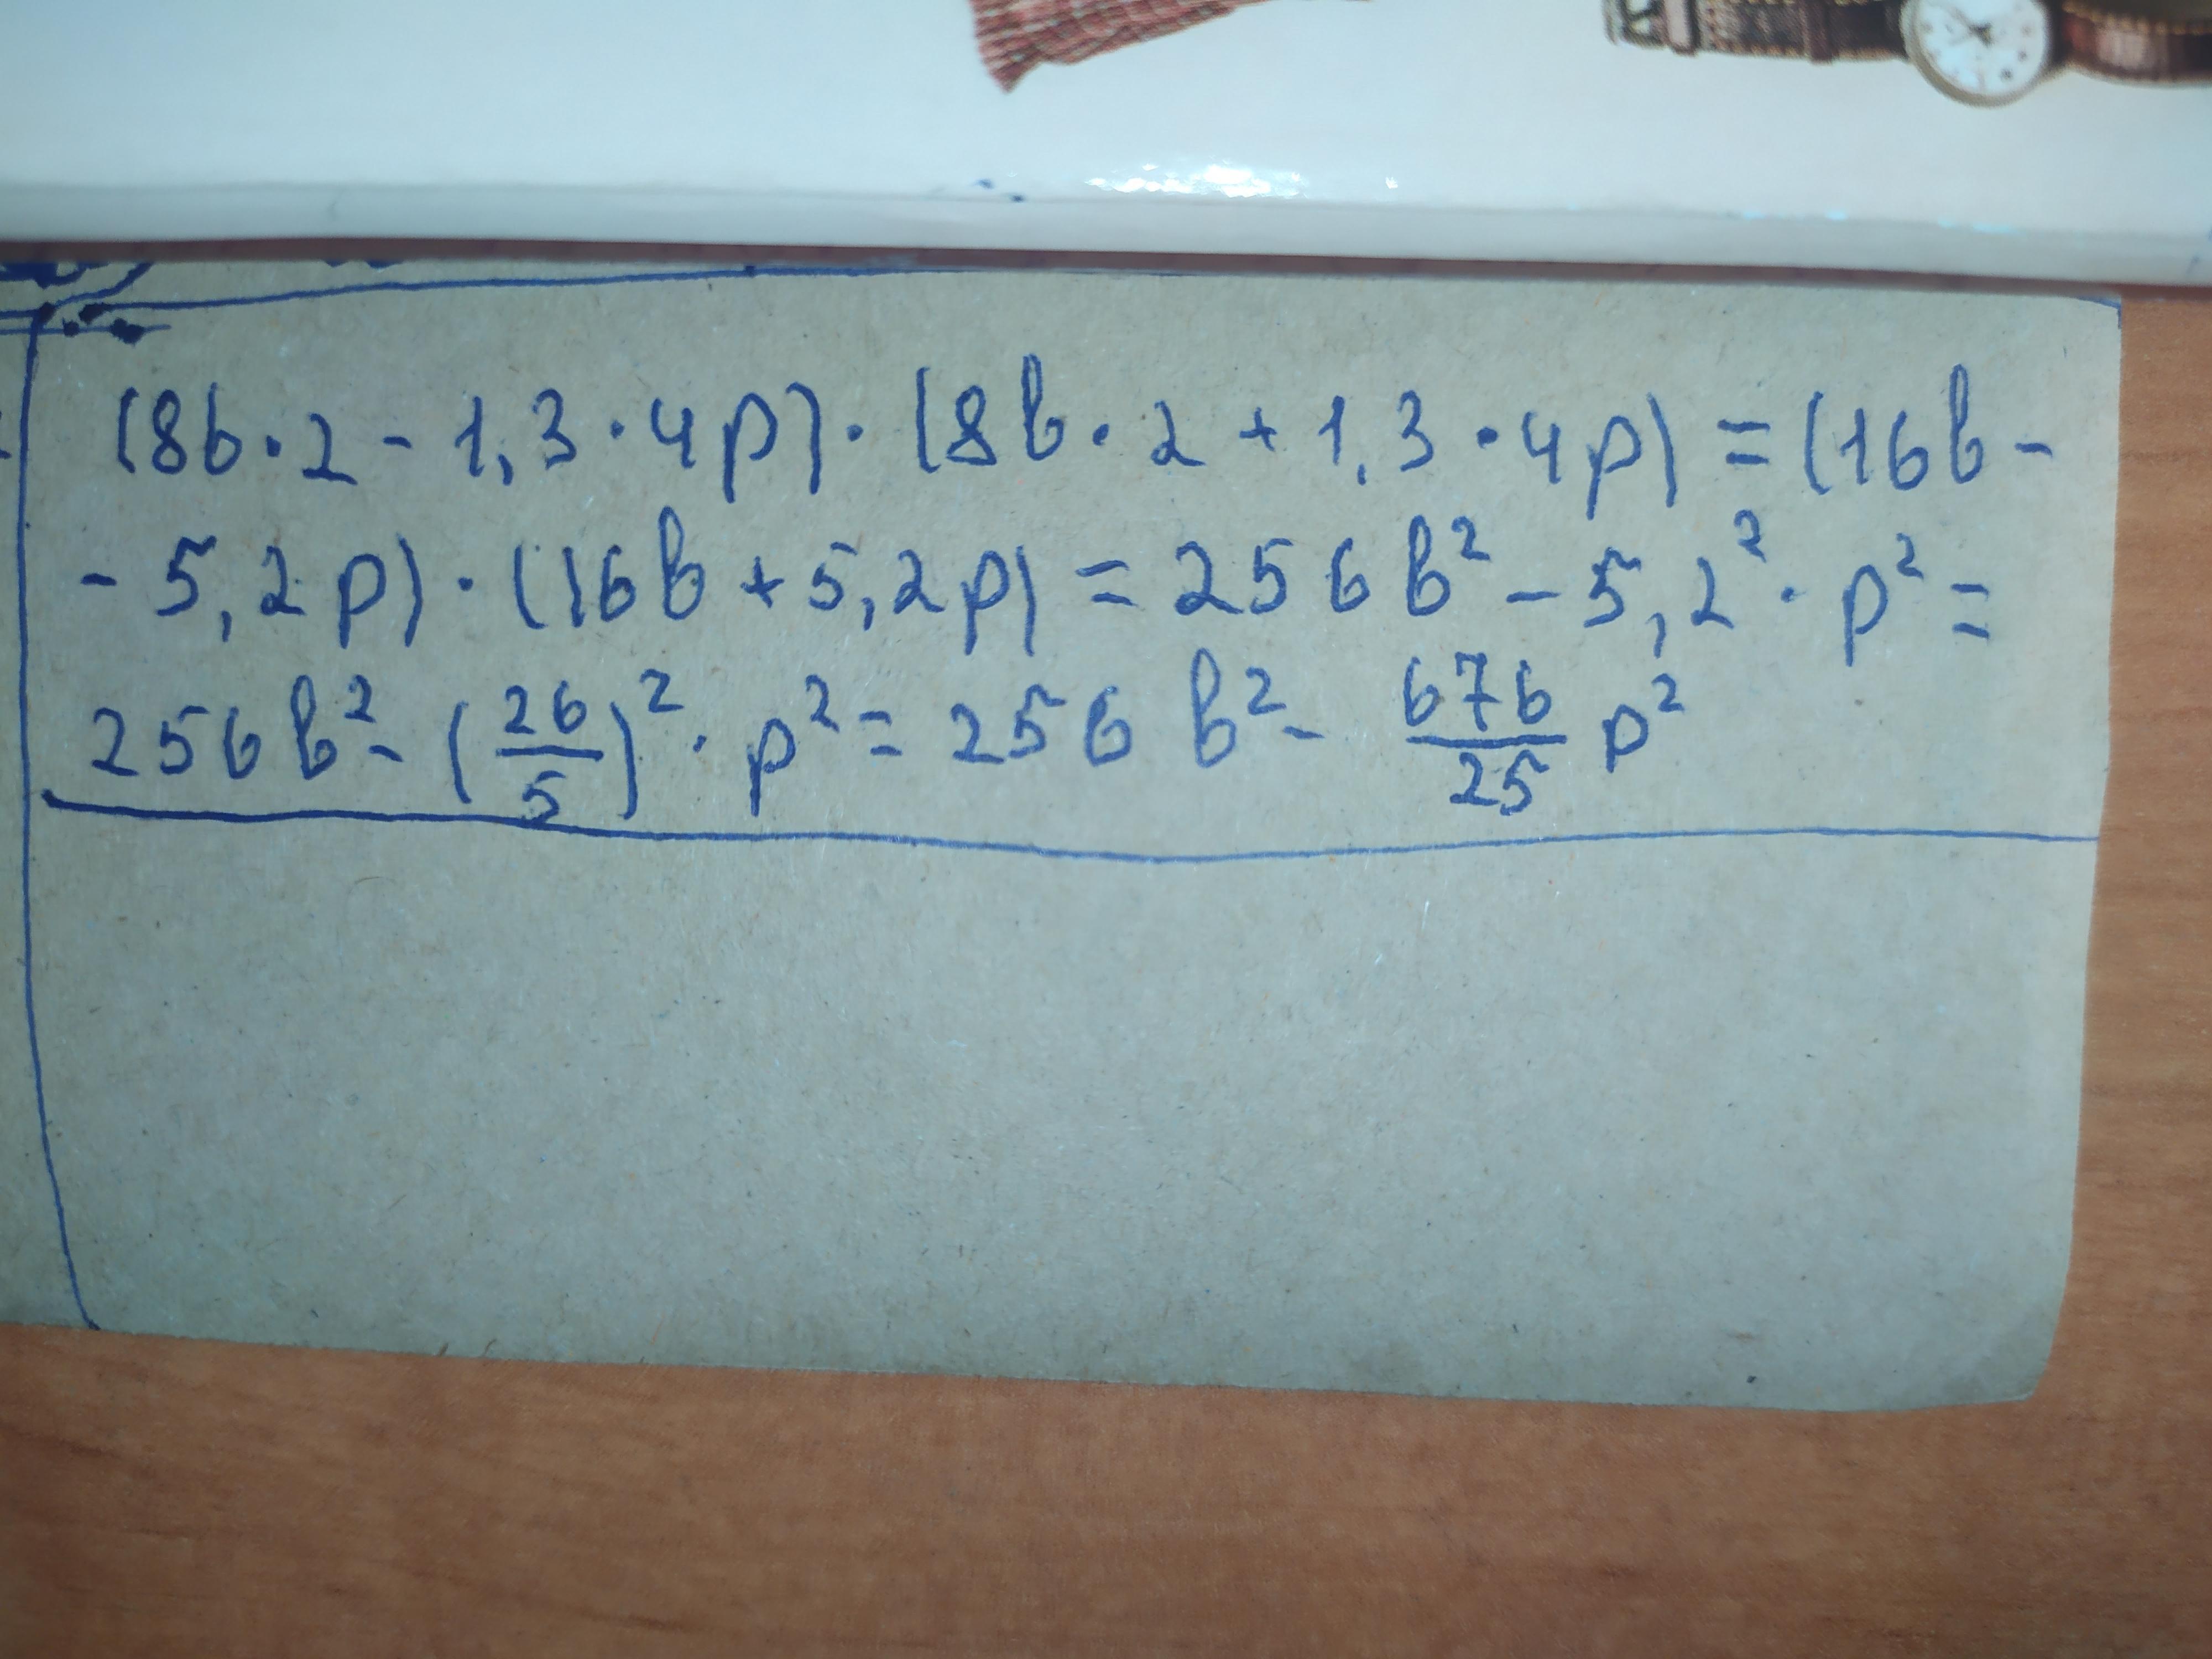 (8b·2-1,3·4p)·(8b·2+1,3·4p)=(16b-
-5,2p)·(16b+5,2p)=256b²-5,2²·p²=
256b²-(26/5)²·p²=256b²-676/25 p²